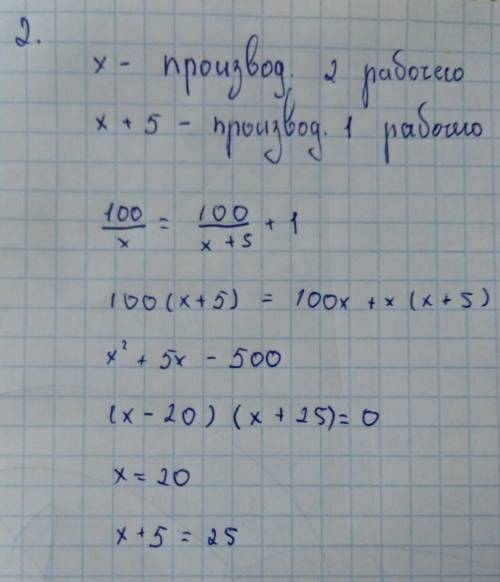 2.
x - производ. 2 рабочего
x + 5 - производ. 1 рабочего
100/x = 100/(x + 5) + 1
100(x+5) = 100x + x(x+5)
x² + 5x - 500
(x - 20) (x + 25) = 0
x = 20
x + 5 = 25